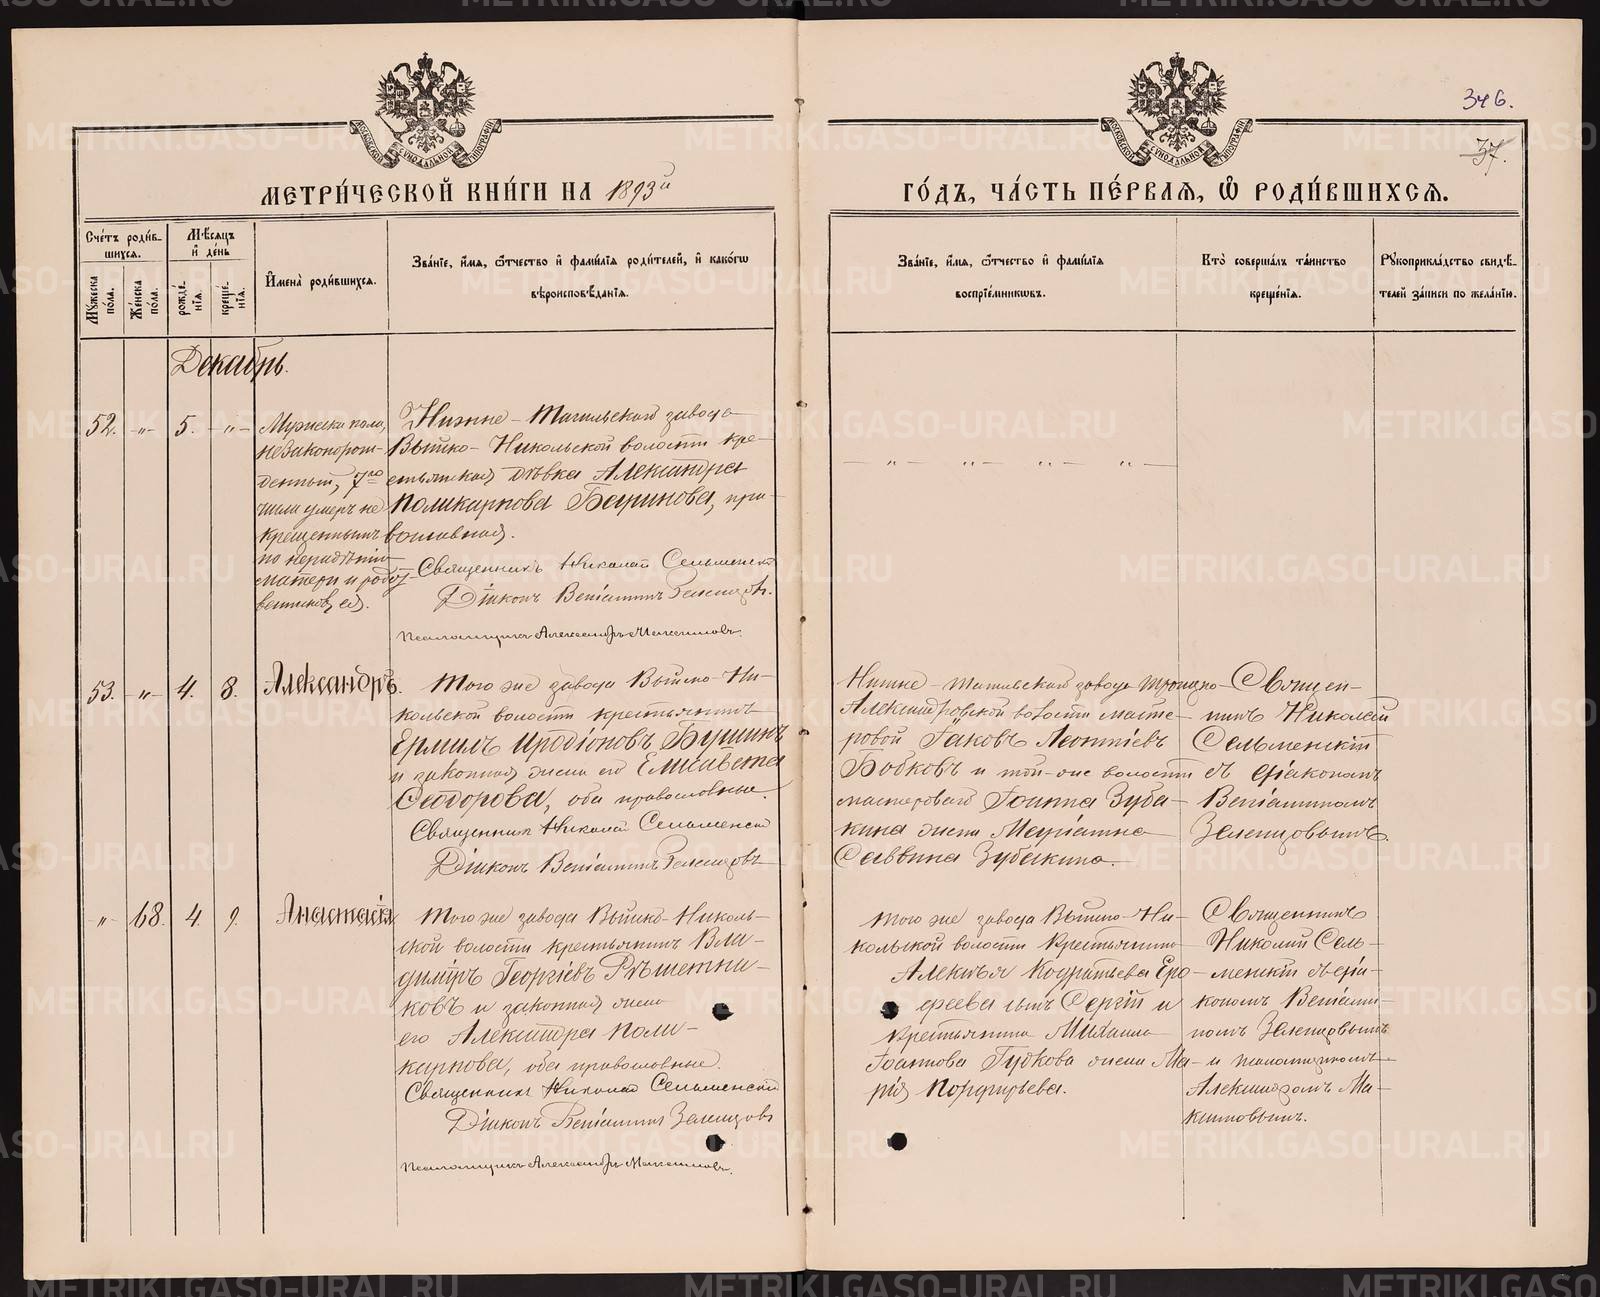 346.
37.
МЕТРИ́ЧЕСКОЙ КНИ́ГИ НА 1893й
ГО́ДЪ, ЧА́СТЬ ПЕ́РВАЯ, Ѡ РОДИ́ВШИХСЯ.
Сче́тъ роди́в-
шихся.
Мѣ́сяцъ
и҆ де́нь
Мꙋ́жеска
по́ла.
Же́нска
по́ла.
рожде́-
нїѧ.
креще́-
нїѧ.
И҆мена̀ роди́вшихся.
Зва́нїе, и҆́мя, ѻ҆́тчество и҆ фамѝлїя роди́телей, и҆ како́гѡ
вѣроисповѣ́данїѧ.
Зва́нїе, и҆́мя, ѻ҆́тчество и҆ фамѝлїя
воспрїе́мникѡвъ.
Кто̀ соверша́лъ та́инство
креще́нїѧ.
Рꙋкоприкла́дство свидѣ́-
телей за́писи по жела́нїю.
Декабрь.
52. -„- 5. -„-
Мужеска пола,
незаконорож-
денный, 7го
числа умеръ не
крещеннымъ
по нерадѣнію
матери и родс
ея.
Нижне-Тагильскаго завода
Выйско-Никольской волости кре-
стьянская дѣвка Александра
Поликарпова Баринова, пра-
вославная.
Священникъ Николай Сельменскій
Діаконъ Веніаминъ Зеленцовъ.
Псаломщикъ Александръ Макшимовъ.
-„- -„- -„- -„-
53. -„- 4. 8.
Александръ.
Того же завода Выйско-Ни-
кольской волости крестьянинъ
Ермилъ Иродіоновъ Бушинъ
и законная жена его Елисавета
Ѳеодорова, оба православные.
Священникъ Николай Сельменскій
Діаконъ Веніаминъ Зеленцовъ
Нижне-Тагильскаго завода Троицко-
Александровской волости масте-
ровой Іаковъ Леонтіевъ
Бобковъ и той-же волости
мастероваго Іоанна Зуба-
кина жена Маріанна
Саввина Зубакина.
Священ-
никъ Николай
Сельменскій
съ діакономъ
Веніаминомъ
Зеленцовымъ.
-„- 68. 4. 9.
Анастасія
Того же завода Выйско-Николь-
ской волости крестьянинъ Вла-
димиръ Георгіевъ Рѣшетни-
ковъ и законная жена
его Александра Поли-
карпова, оба православные.
Священникъ Николай Сельменскій
Діаконъ Веніаминъ Зеленцовъ
Псаломщикъ Александръ Макшимовъ.
Того же завода Выйско-Ни-
кольской волости крестьянина
Алексѣя Кодратьева Еро-
феева сынъ Сергій и
крестьянина Михаила
Іоаннова Гудкова жена Ма-
рія Порфирьева.
Священникъ
Николай Сель-
менскій съ діа-
кономъ Веніами-
номъ Зеленцовымъ
и псаломщикомъ
Александромъ Ма-
кшимовымъ.
METRIKI.GASO-URAL.RU